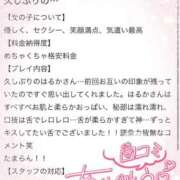 久しぶりの…
【女の子について】
優しく、セクシー、笑顔満点、気遣い最高
【料金納得度】
めちゃくちゃ格安料金
【プレイ内容】
久しぶりのはるかさん…前回お互いの印象が残っ
ていたので良く覚えてくれました。はるかさんは
すべすべお肌と柔らかおっぱい、秘部は濡れ濡れ、
口技は舌でレロレロ…舌が柔らかすぎて神…ずっと
キスしてたいぐらいでした‼︎！
コメント笑
たまらん！！
【スタッフの対応】
口コミ